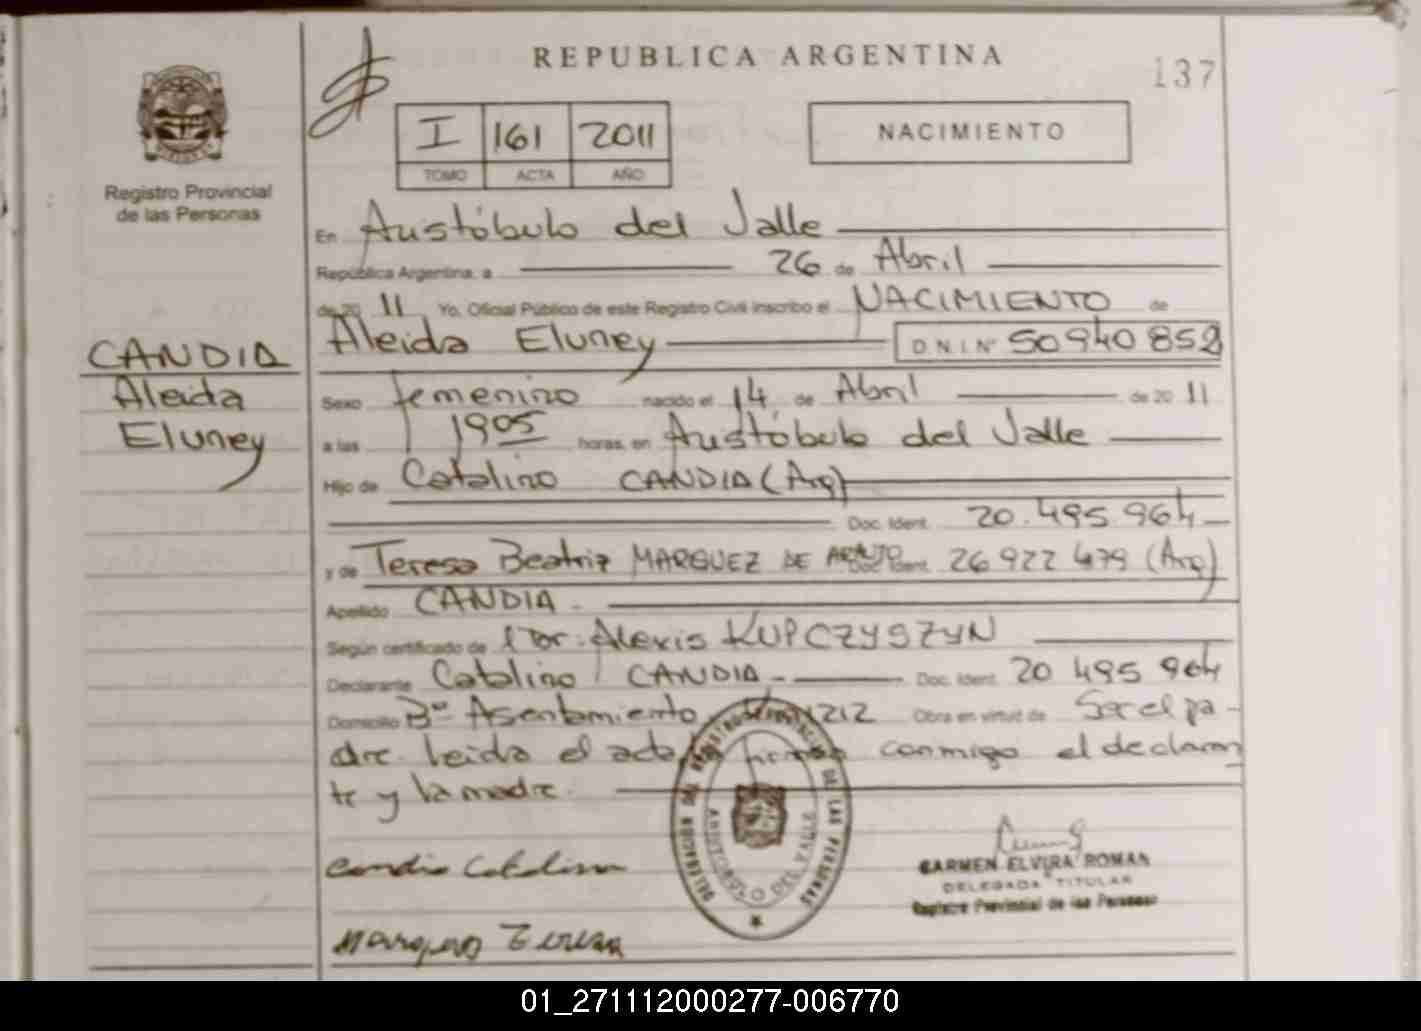 REPUBLICA ARGENTINA
137
I 161 2011
TOMO ACTA AÑO
NACIMIENTO
Registro Provincial
de las Personas
En Aristóbulo del Valle
República Argentina, a 26 de Abril
de 20 11 Yo, Oficial Público de este Registro Civil inscribo el NACIMIENTO de
Aleida Eluney D.N.I. Nº 50940852
CANDIA
Aleida
Eluney
Sexo femenino nacido el 14 de Abril de 20 11
a las 1905 horas, en Aristóbulo del Valle
Hijo de Catalino CANDIA (Arg)
Doc. Ident. 20.495.964
y de Teresa Beatriz MARQUEZ DE ARAUJO Doc. Ident. 26 922 479 (Arg)
Apellido CANDIA
Según certificado de Dor. Alexis KUPCZYSZYN
Declarante Catalino CANDIA Doc. Ident. 20 495 964
Domicilio Bº Asentamiento 1212 Obra en virtud de Ser el pa-
dre. leida el acta firman conmigo el declaran
te y la madre.
DELEGACION DEL REGISTRO PROVINCIAL DE LAS PERSONAS
ARISTOBULO DEL VALLE
Candia Catalino
CARMEN ELVIRA ROMAN
DELEGADA TITULAR
Registro Provincial de las Personas
Marquez Teresa
01_271112000277-006770